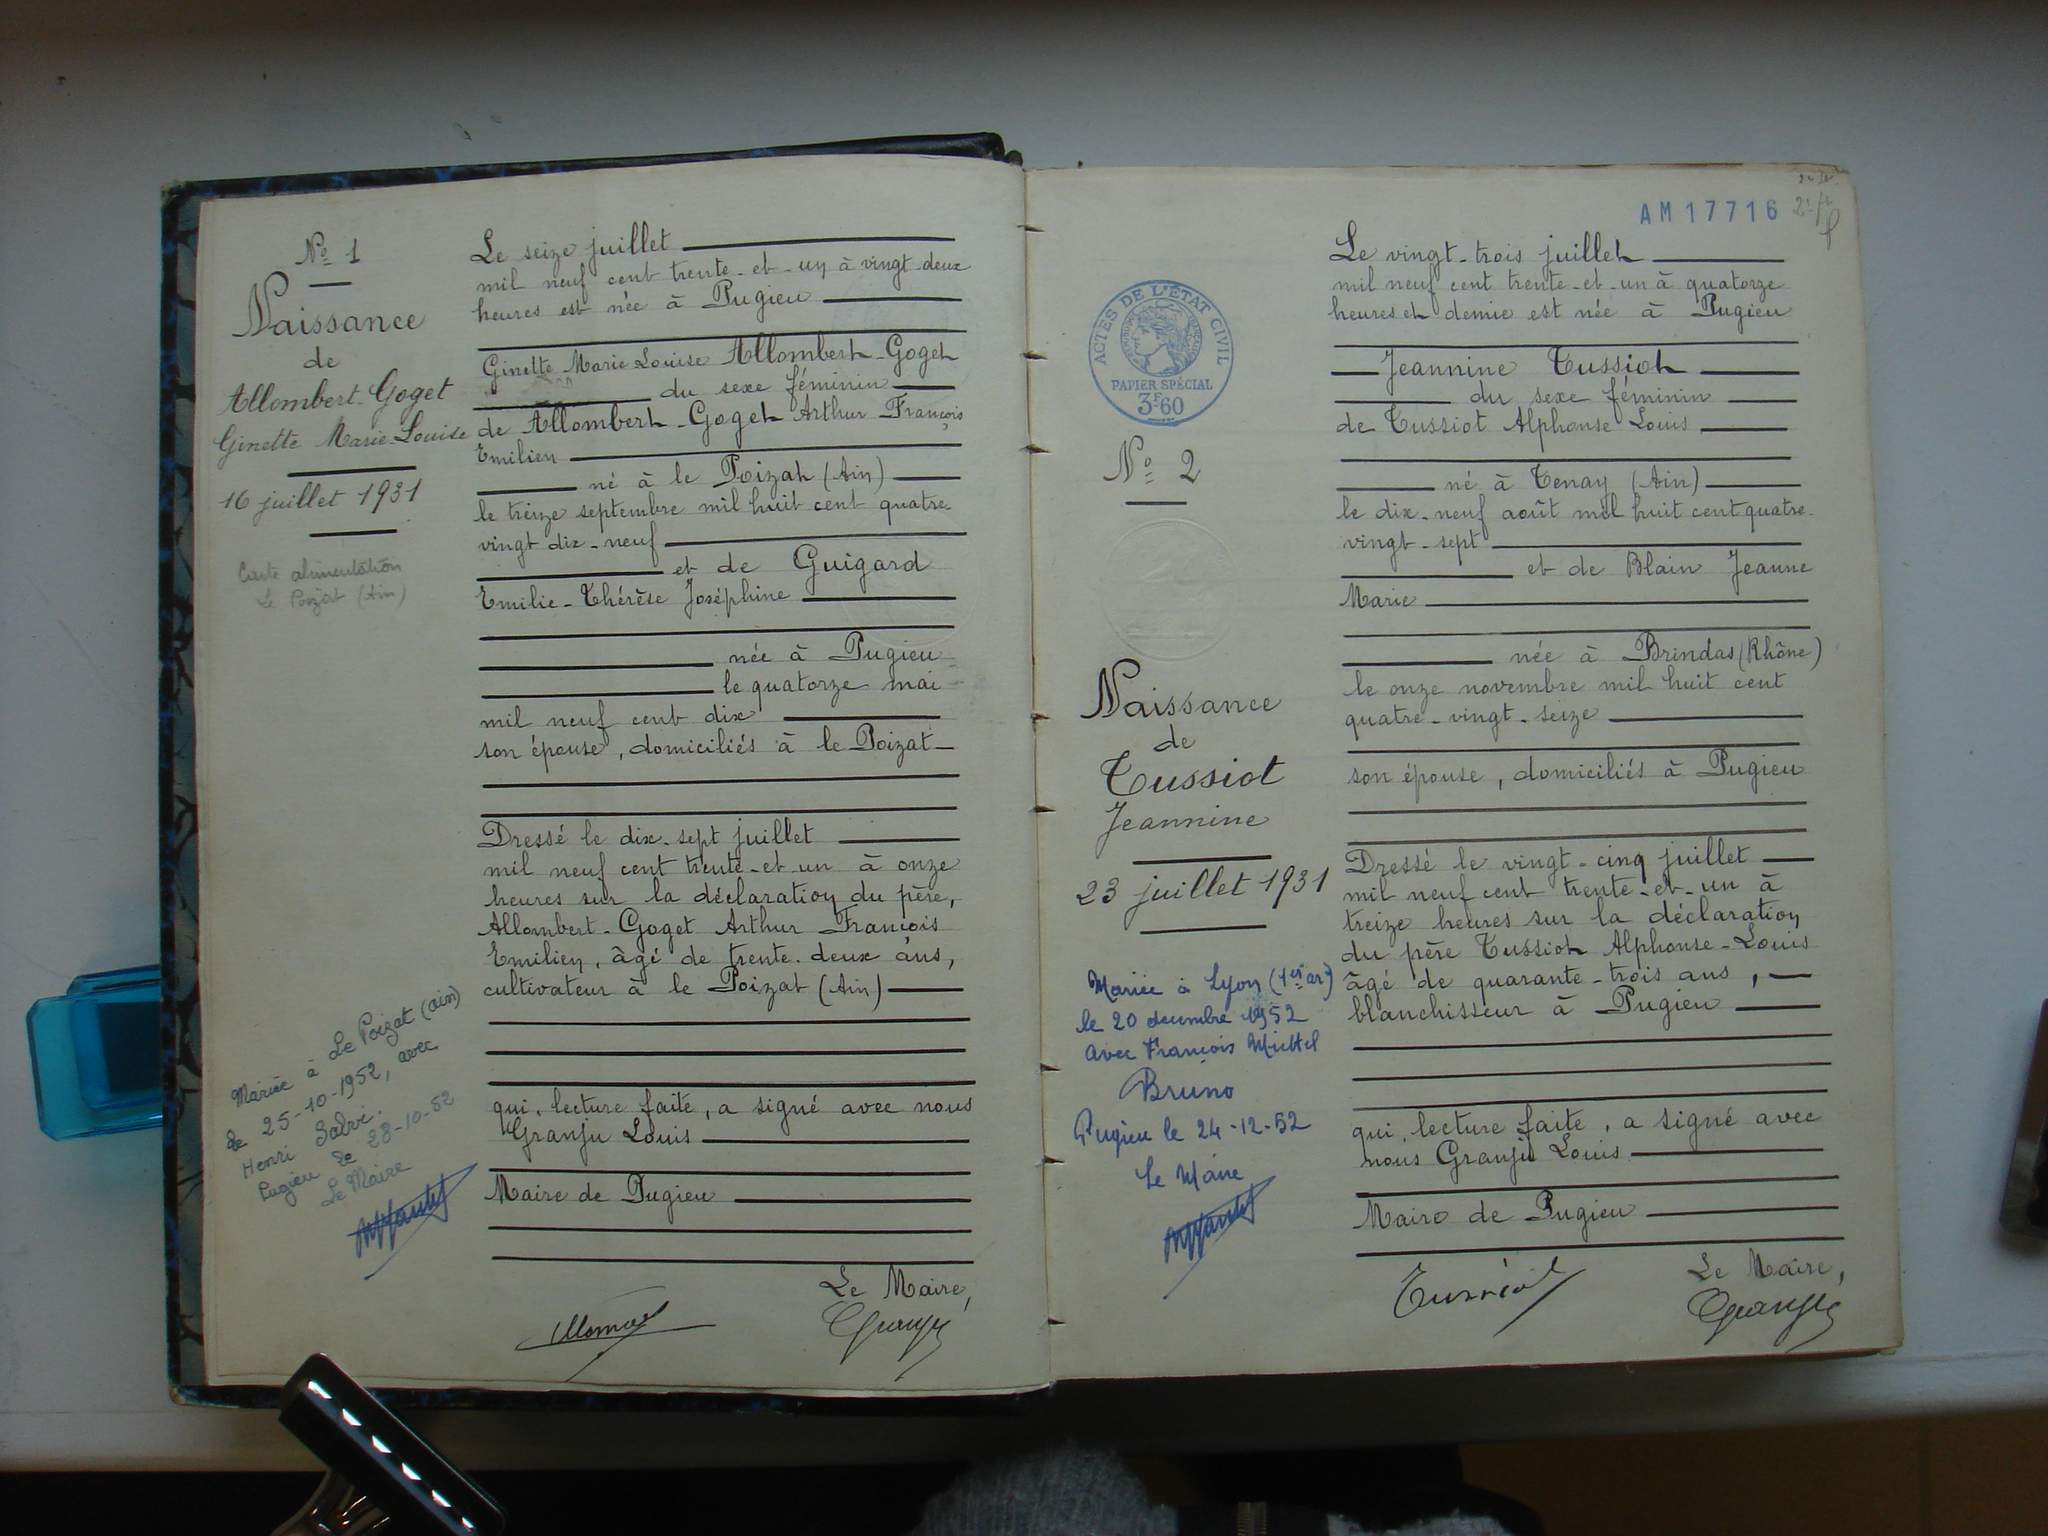 Nº 1
Naissance
de
Allombert-Goget
Ginette Marie-Louise
16 juillet 1931
Carte alimentation
Le Poizat (Ain)
Mariée à Le Poizat (ain)
le 25-10-1952, avec
Henri
Pugieu le 28-10-52
Le Maire
Le seize juillet
mil neuf cent trente-et-un à vingt-deux
heures est née à Pugieu
Ginette Marie Louise Allombert-Goget
du sexe féminin
de Allombert-Goget Arthur François
Emilien
né à le Poizat (Ain)
le treize septembre mil huit cent quatre
vingt dix-neuf
et de Guigard
Emilie-Thérèse Joséphine
née à Pugieu
le quatorze mai
mil neuf cent dix
son épouse, domiciliés à le Poizat
Dressé le dix-sept juillet
mil neuf cent trente-et-un à onze
heures sur la déclaration du père,
Allombert-Goget Arthur François
Emilien, âgé de trente-deux ans,
cultivateur à le Poizat (Ain)
qui, lecture faite, a signé avec nous
Granju Louis
Maire de Pugieu
Le Maire,
Granju
AM 17716
ACTES DE L'ÉTAT CIVIL
PAPIER SPÉCIAL
3F60
Nº 2
Naissance
de
Tussiot
Jeannine
23 juillet 1931
Mariée à Lyon (1er ar)
le 20 decembre 1952
avec François Michel
Bruno
Pugieu le 24-12-52
Le Maire
Le vingt-trois juillet
mil neuf cent trente-et-un à quatorze
heures et demie est née à Pugieu
Jeannine Tussiot
du sexe féminin
de Tussiot Alphonse Louis
né à Tenay (Ain)
le dix-neuf août mil huit cent quatre-
vingt-sept
et de Blain Jeanne
Marie
née à Brindas (Rhône)
le onze novembre mil huit cent
quatre-vingt-seize
son épouse, domiciliés à Pugieu
Dressé le vingt-cinq juillet
mil neuf cent trente-et-un à
treize heures sur la déclaration
du père Tussiot Alphonse-Louis
âgé de quarante-trois ans,
blanchisseur à Pugieu
qui, lecture faite, a signé avec
nous Granju Louis
Maire de Pugieu
Le Maire,
Tussiot
Granju